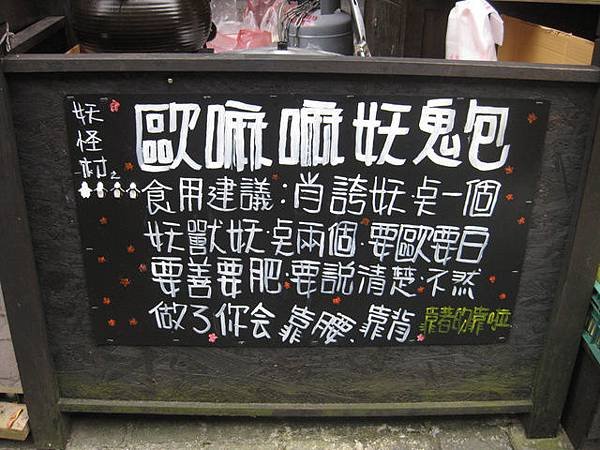 妖怪村
歐嘛嘛妖鬼包
食用建議:肖誇妖桌一個
妖獸妖桌兩個.要歐要白
要善要肥.要說清楚.不然
做了你会靠腰、靠背 靠著的靠啦